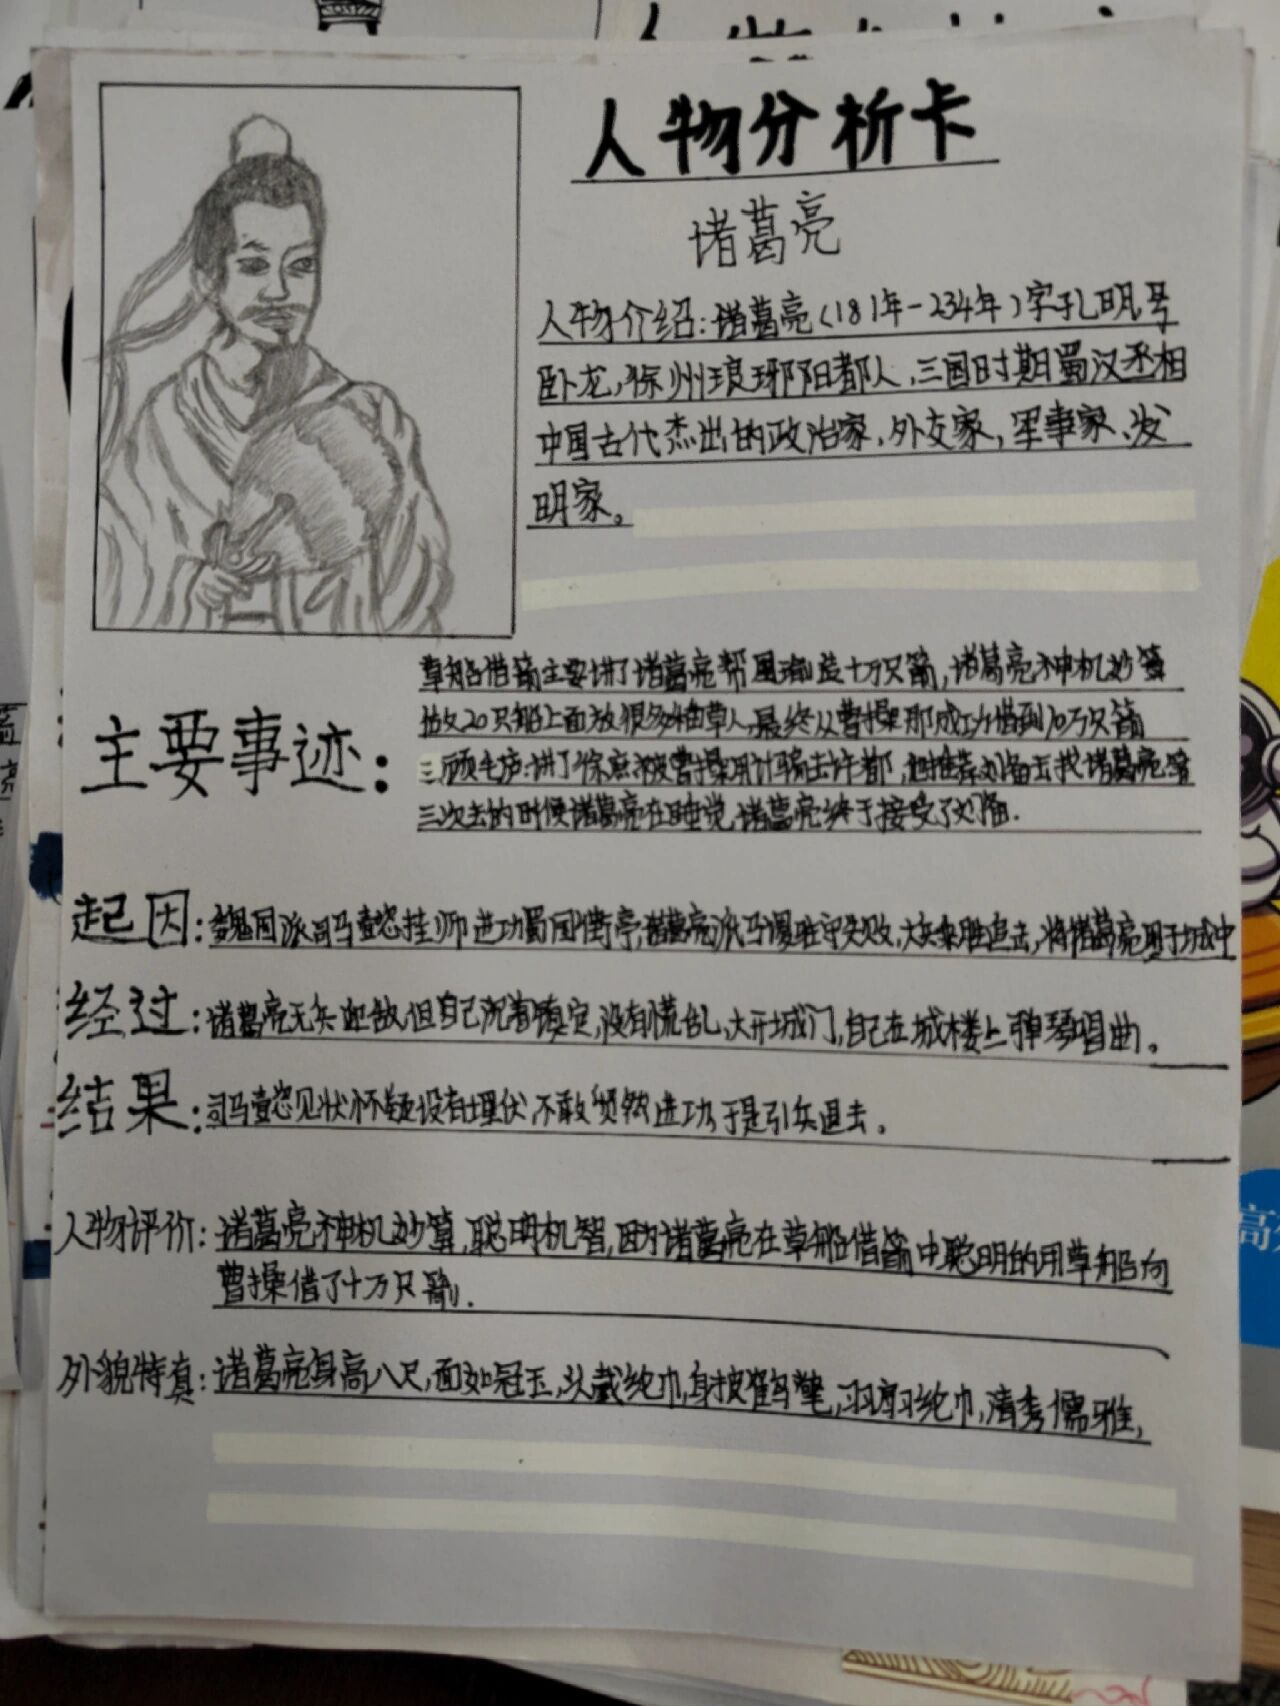 人物分析卡
诸葛亮
人物介绍：诸葛亮(181年-234年)字孔明，号
卧龙，徐州琅玡阳都人，三国时期蜀汉丞相
中国古代杰出的政治家，外交家，军事家、发
明家。
主要事迹：
草船借箭主要讲了诸葛亮帮周瑜造十万只箭，诸葛亮神机妙算
做又20只船上面放很多稻草人，最终从曹操那成功借到10万只箭
三顾毛庐：讲了徐庶被曹操用计骗去许都，他推荐刘备去找诸葛亮第
三次去的时候诸葛亮在睡觉，诸葛亮终于接受了刘备.
起因：魏国派司马懿挂帅进功蜀国街亭，诸葛亮派马谡驻守失败，大兵乘胜追击，将诸葛亮困于城中
经过：诸葛亮无兵迎敌，但自己沉着镇定，没有慌乱，大开城门，自己在城楼上弹琴唱曲。
结果：司马懿见状怀疑设有埋伏不敢贸然进功，于是引兵退去。
人物评价：诸葛亮神机妙算，聪明机智，因为诸葛亮在草船借箭中聪明的用草船向
曹操借了十万只箭.
外貌特真：诸葛亮身高八尺，面如冠玉，头戴纶巾，身披鹤氅，羽扇纶巾，清秀儒雅，